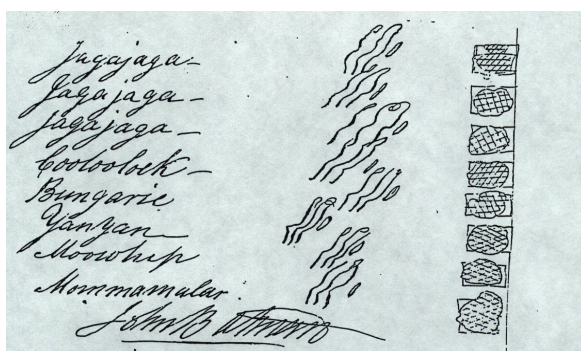 Jagajaga —
Jagajaga —
Jagajaga —
Cooloolock —
Bungarie
Yanyan
Moowhip
Mommamalar.
John Batman